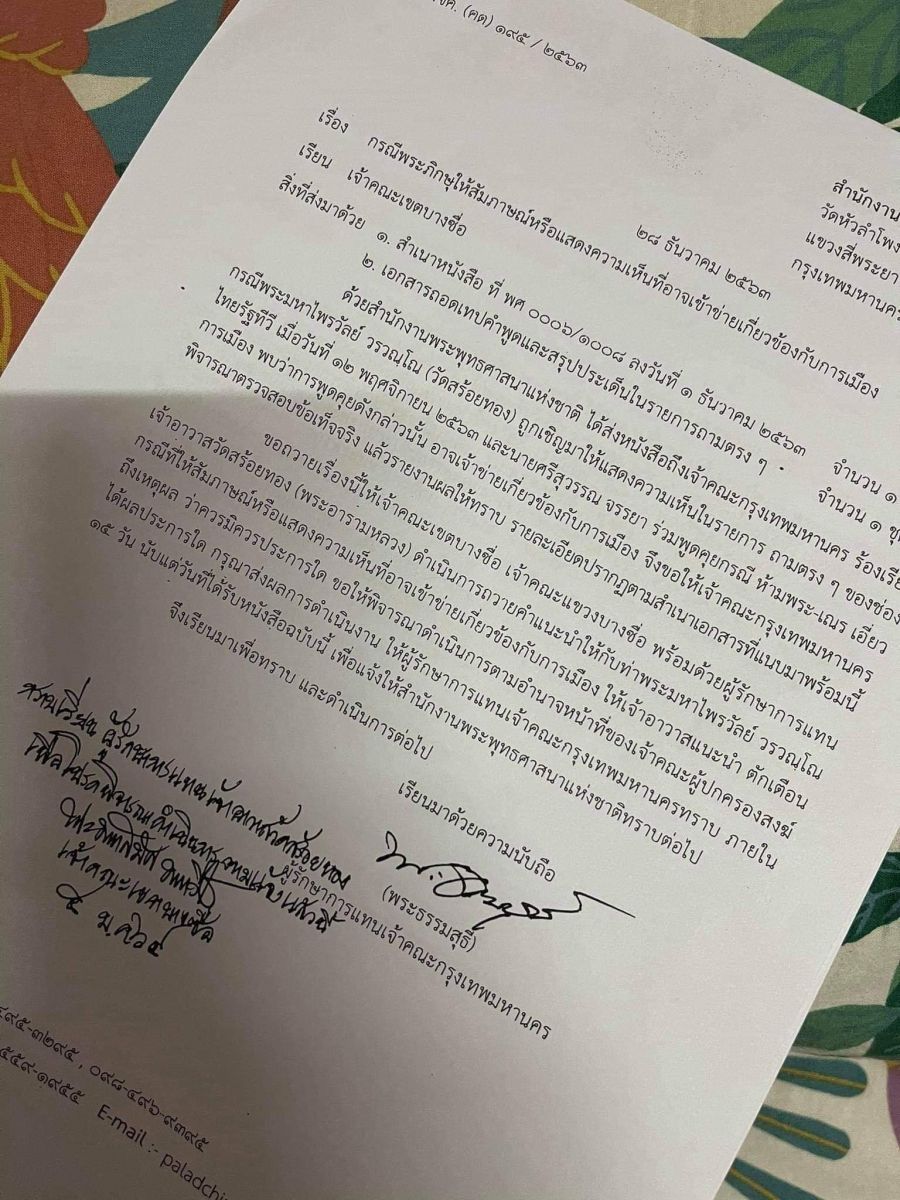 (คด) ๑๙๕ / ๒๕๖๓
สำนักงาน
วัดหัวลำโพง
แขวงสี่พระยา
กรุงเทพมหานคร
๒๘ ธันวาคม ๒๕๖๓
เรื่อง กรณีพระภิกษุให้สัมภาษณ์หรือแสดงความเห็นที่อาจเข้าข่ายเกี่ยวข้องกับการเมือง
เรียน เจ้าคณะเขตบางซื่อ
สิ่งที่ส่งมาด้วย ๑. สำเนาหนังสือ ที่ พศ ๐๐๐๖/๑๐๐๘ ลงวันที่ ๑ ธันวาคม ๒๕๖๓ จำนวน ๑
๒. เอกสารถอดเทปคำพูดและสรุปประเด็นในรายการถามตรง ๆ จำนวน ๑ ชุด
ด้วยสำนักงานพระพุทธศาสนาแห่งชาติ ได้ส่งหนังสือถึงเจ้าคณะกรุงเทพมหานคร ร้องเรียน
กรณีพระมหาไพรวัลย์ วรวณฺโณ (วัดสร้อยทอง) ถูกเชิญมาให้แสดงความเห็นในรายการ ถามตรง ๆ ของช่อง
ไทยรัฐทีวี เมื่อวันที่ ๑๒ พฤศจิกายน ๒๕๖๓ และนายศรีสุวรรณ จรรยา ร่วมพูดคุยกรณี ห้ามพระ-เณร เอี่ยว
การเมือง พบว่าการพูดคุยดังกล่าวนั้น อาจเข้าข่ายเกี่ยวข้องกับการเมือง จึงขอให้เจ้าคณะกรุงเทพมหานคร
พิจารณาตรวจสอบข้อเท็จจริง แล้วรายงานผลให้ทราบ รายละเอียดปรากฏตามสำเนาเอกสารที่แนบมาพร้อมนี้
ขอถวายเรื่องนี้ให้เจ้าคณะเขตบางซื่อ เจ้าคณะแขวงบางซื่อ พร้อมด้วยผู้รักษาการแทน
เจ้าอาวาสวัดสร้อยทอง (พระอารามหลวง) ดำเนินการถวายคำแนะนำให้กับท่าพระมหาไพรวัลย์ วรวณฺโณ
กรณีที่ให้สัมภาษณ์หรือแสดงความเห็นที่อาจเข้าข่ายเกี่ยวข้องกับการเมือง ให้เจ้าอาวาสแนะนำ ตักเตือน
ถึงเหตุผล ว่าควรมิควรประการใด ขอให้พิจารณาดำเนินการตามอำนาจหน้าที่ของเจ้าคณะผู้ปกครองสงฆ์
ได้ผลประการใด กรุณาส่งผลการดำเนินงาน ให้ผู้รักษาการแทนเจ้าคณะกรุงเทพมหานครทราบ ภายใน
๑๕ วัน นับแต่วันที่ได้รับหนังสือฉบับนี้ เพื่อแจ้งให้สำนักงานพระพุทธศาสนาแห่งชาติทราบต่อไป
จึงเรียนมาเพื่อทราบ และดำเนินการต่อไป
เรียนมาด้วยความนับถือ
(พระธรรมสุธี)
ผู้รักษาการแทนเจ้าคณะกรุงเทพมหานคร
ผู้รักษาการแทนเจ้าอาวาสวัดสร้อยทอง
เพื่อโปรดพิจารณาดำเนินการ
เจ้าคณะเขตบางซื่อ
๕ ม.ค. ๖๔
๔๙๕-๓๒๙๕ , ๐๙๘-๔๙๖-๙๓๙๕
๕๕๙-๑๙๕๕ E-mail :- paladchi